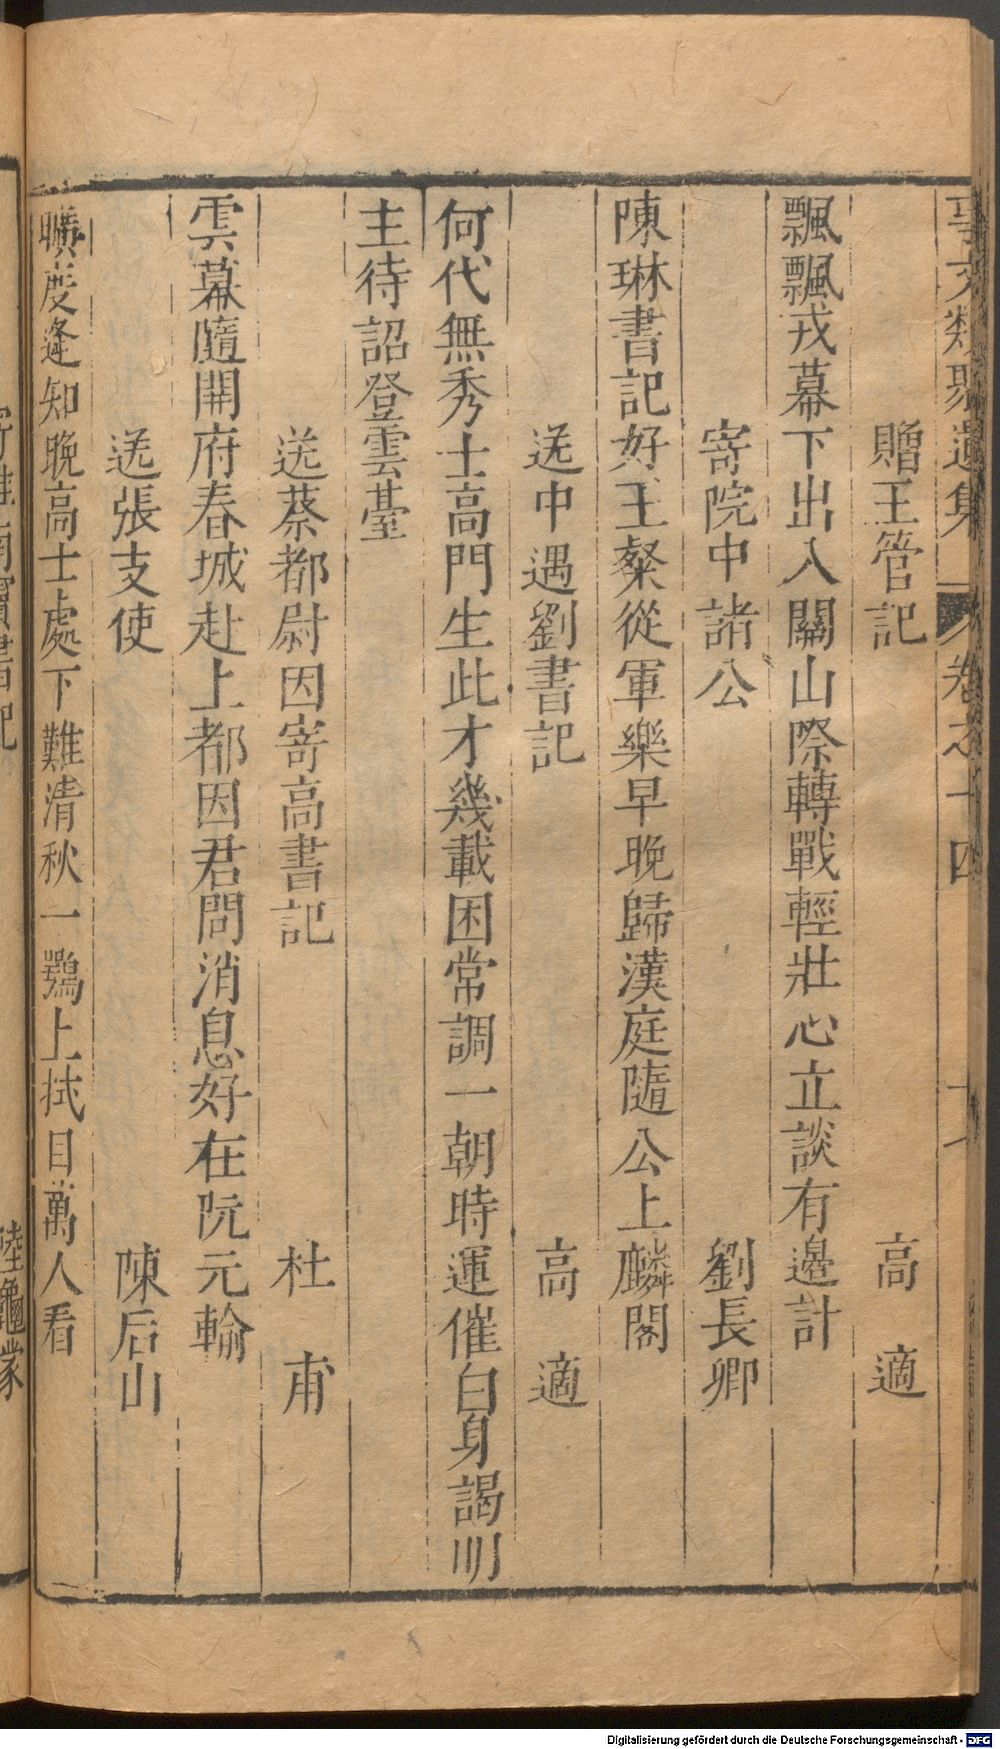 事文類聚遺集 卷之十四
贈王管記 高適
飄飄戎幕下出入關山際轉戰輕壯心立談有邊計
寄院中諸公 劉長卿
陳琳書記好王粲從軍樂早晚歸漢庭隨公上麟閣
送中遇劉書記 高適
何代無秀士高門生此才幾載困常調一朝時運催白身謁明
主待詔登雲臺
送蔡都尉因寄高書記 杜甫
雲幕隨開府春城赴上都因君問消息好在阮元輸
送張支使 陳后山
曠度逢知晚高士處下難清秋一鶚上拭目萬人看
書記 陸龜蒙
Digitalisierung gefördert durch die Deutsche Forschungsgemeinschaft - DFG